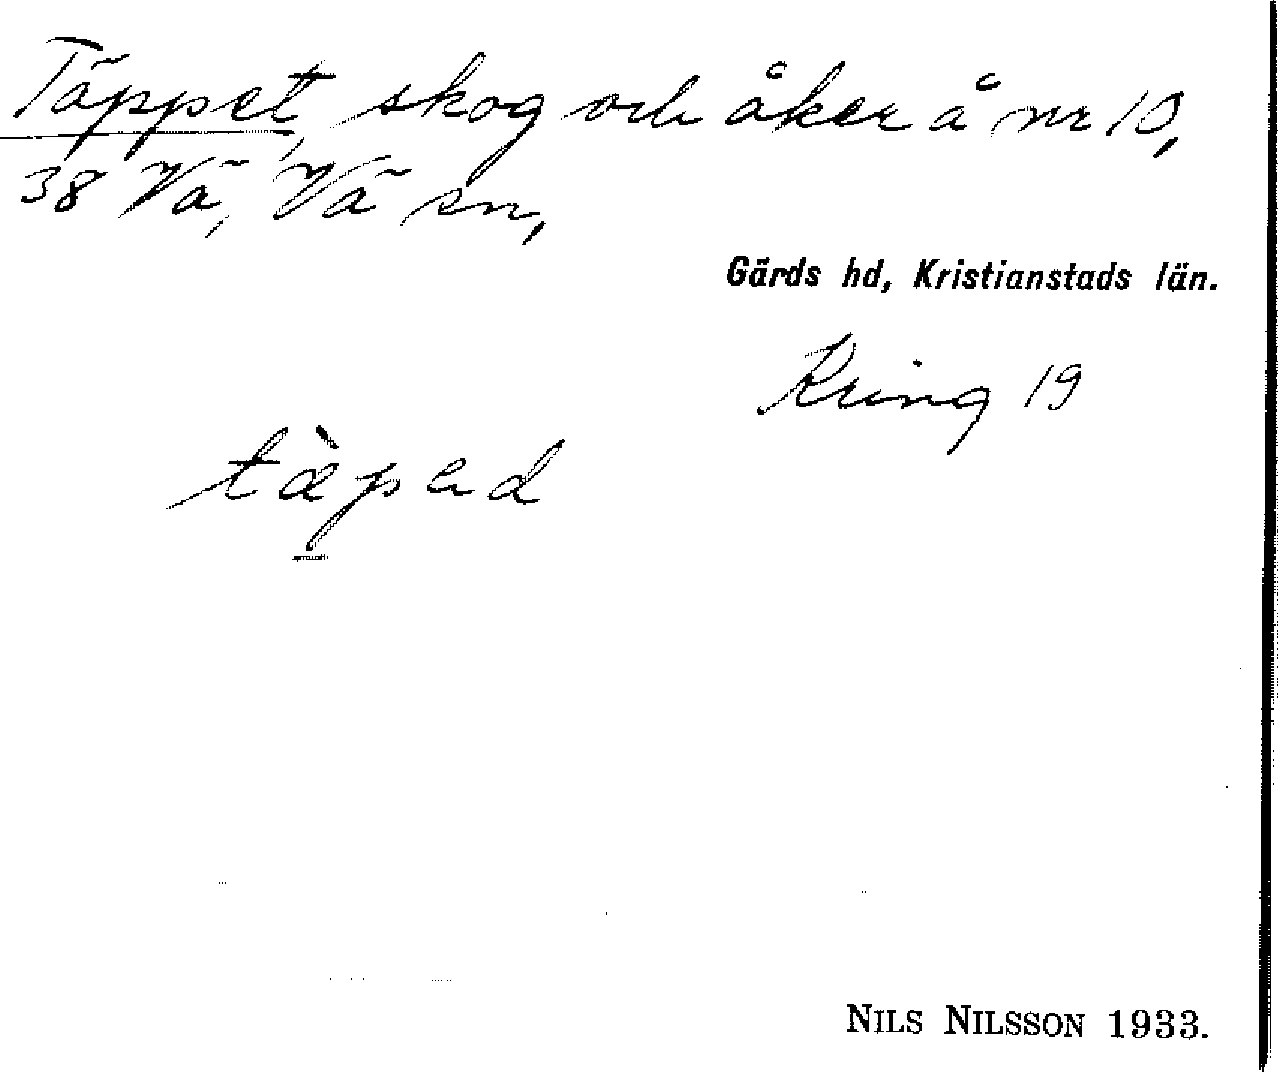 Täppet, skog och åker å nr 10,
38 Vä, Vä sn,
Gärds hd, Kristianstads län.
Kring 19
NILS NILSSON 1933.